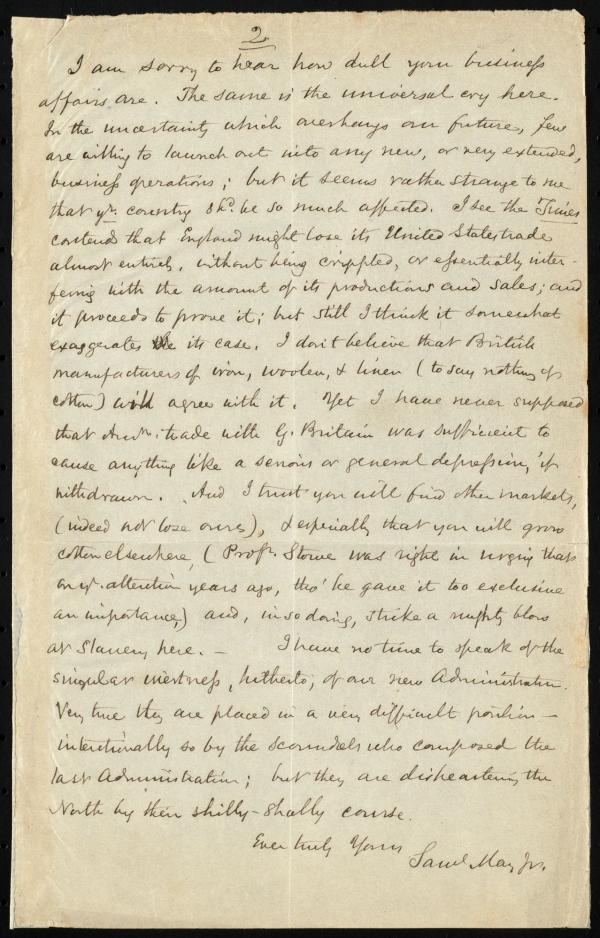 2
I am sorry to hear how dull your business
affairs are. The same is the universal cry here.
In the uncertainty which overhangs our future, few
are willing to launch out into any new, or very extended,
business operations; but it seems rather strange to me
that yr. country shd. be so much affected. I see the Times
contends that England might lose its United States trade
almost entirely, without being crippled, or essentially inter-
fering with the amount of its productions and sales; and
it proceeds to prove it; but still I think it somewhat
exaggerates its case. I don't believe that British
manufacturers of iron, woolen, & linen (to say nothing of
cotton) will agree with it. Yet I have never supposed
that Amn. trade with G. Britain was sufficient to
cause anything like a serious or general depression, if
withdrawn. And I trust you will find other markets,
(indeed not lose ours), & especially that you will grow
cotton elsewhere, (Profr. Stowe was right in urging that
on yr. attention years ago, tho' he gave it too exclusive
an importance,) and, in so doing, strike a mighty blow
at Slavery here. — I have no time to speak of the
singular inertness, hitherto, of our new Administration.
Very true they are placed in a very difficult position —
intentionally so by the scoundrels who composed the
last Administration; but they are disheartening the
North by their shilly-shally course.
Ever truly Yours
Saml. May Jr.